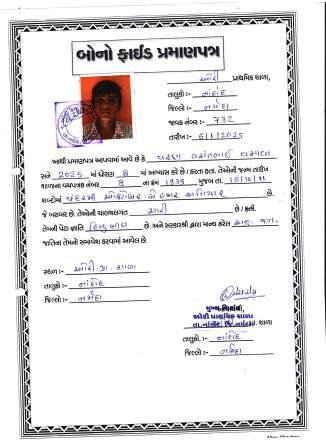 બોનો ફાઈડ પ્રમાણપત્ર
ઓરી પ્રાથમિક શાળા,
તાલુકો :- નાંદોદ
જિલ્લો :- નર્મદા
જાવક નંબર :- 732
તારીખ :- 6/1/2025
આથી પ્રમાણપત્ર આપવામાં આવે છે કે વસાવા
સને 2025 માં ધોરણ 8 માં અભ્યાસ કરે છે / કરતા હતા. તેઓની જન્મ તારીખ
શાળાના વયપત્રક નંબર 8 ના ક્રમ 1939 મુજબ તા. 15/10/11
શબ્દોમાં પંદરમી ઓક્ટોબર બે હજાર અગિયાર
જે બરાબર છે. તેઓની ચાલચલગત સારી છે / હતી.
તેમની પેટા જ્ઞાતિ હિન્દુ ભીલ છે. અને સરકારશ્રી દ્વારા માન્ય કરેલ અનુ. જન.
જાતિના તેમનો સમાવેશ કરવામાં આવેલ છે.
સ્થળ :- ઓરી પ્રા. શાળા
તાલુકો :- નાંદોદ
જિલ્લો :- નર્મદા
મુખ્ય શિક્ષક
ઓરી પ્રાથમિક શાળા
તા.નાંદોદ, જિ.નર્મદા. શાળા
તાલુકો :- નાંદોદ
જિલ્લો :- નર્મદા